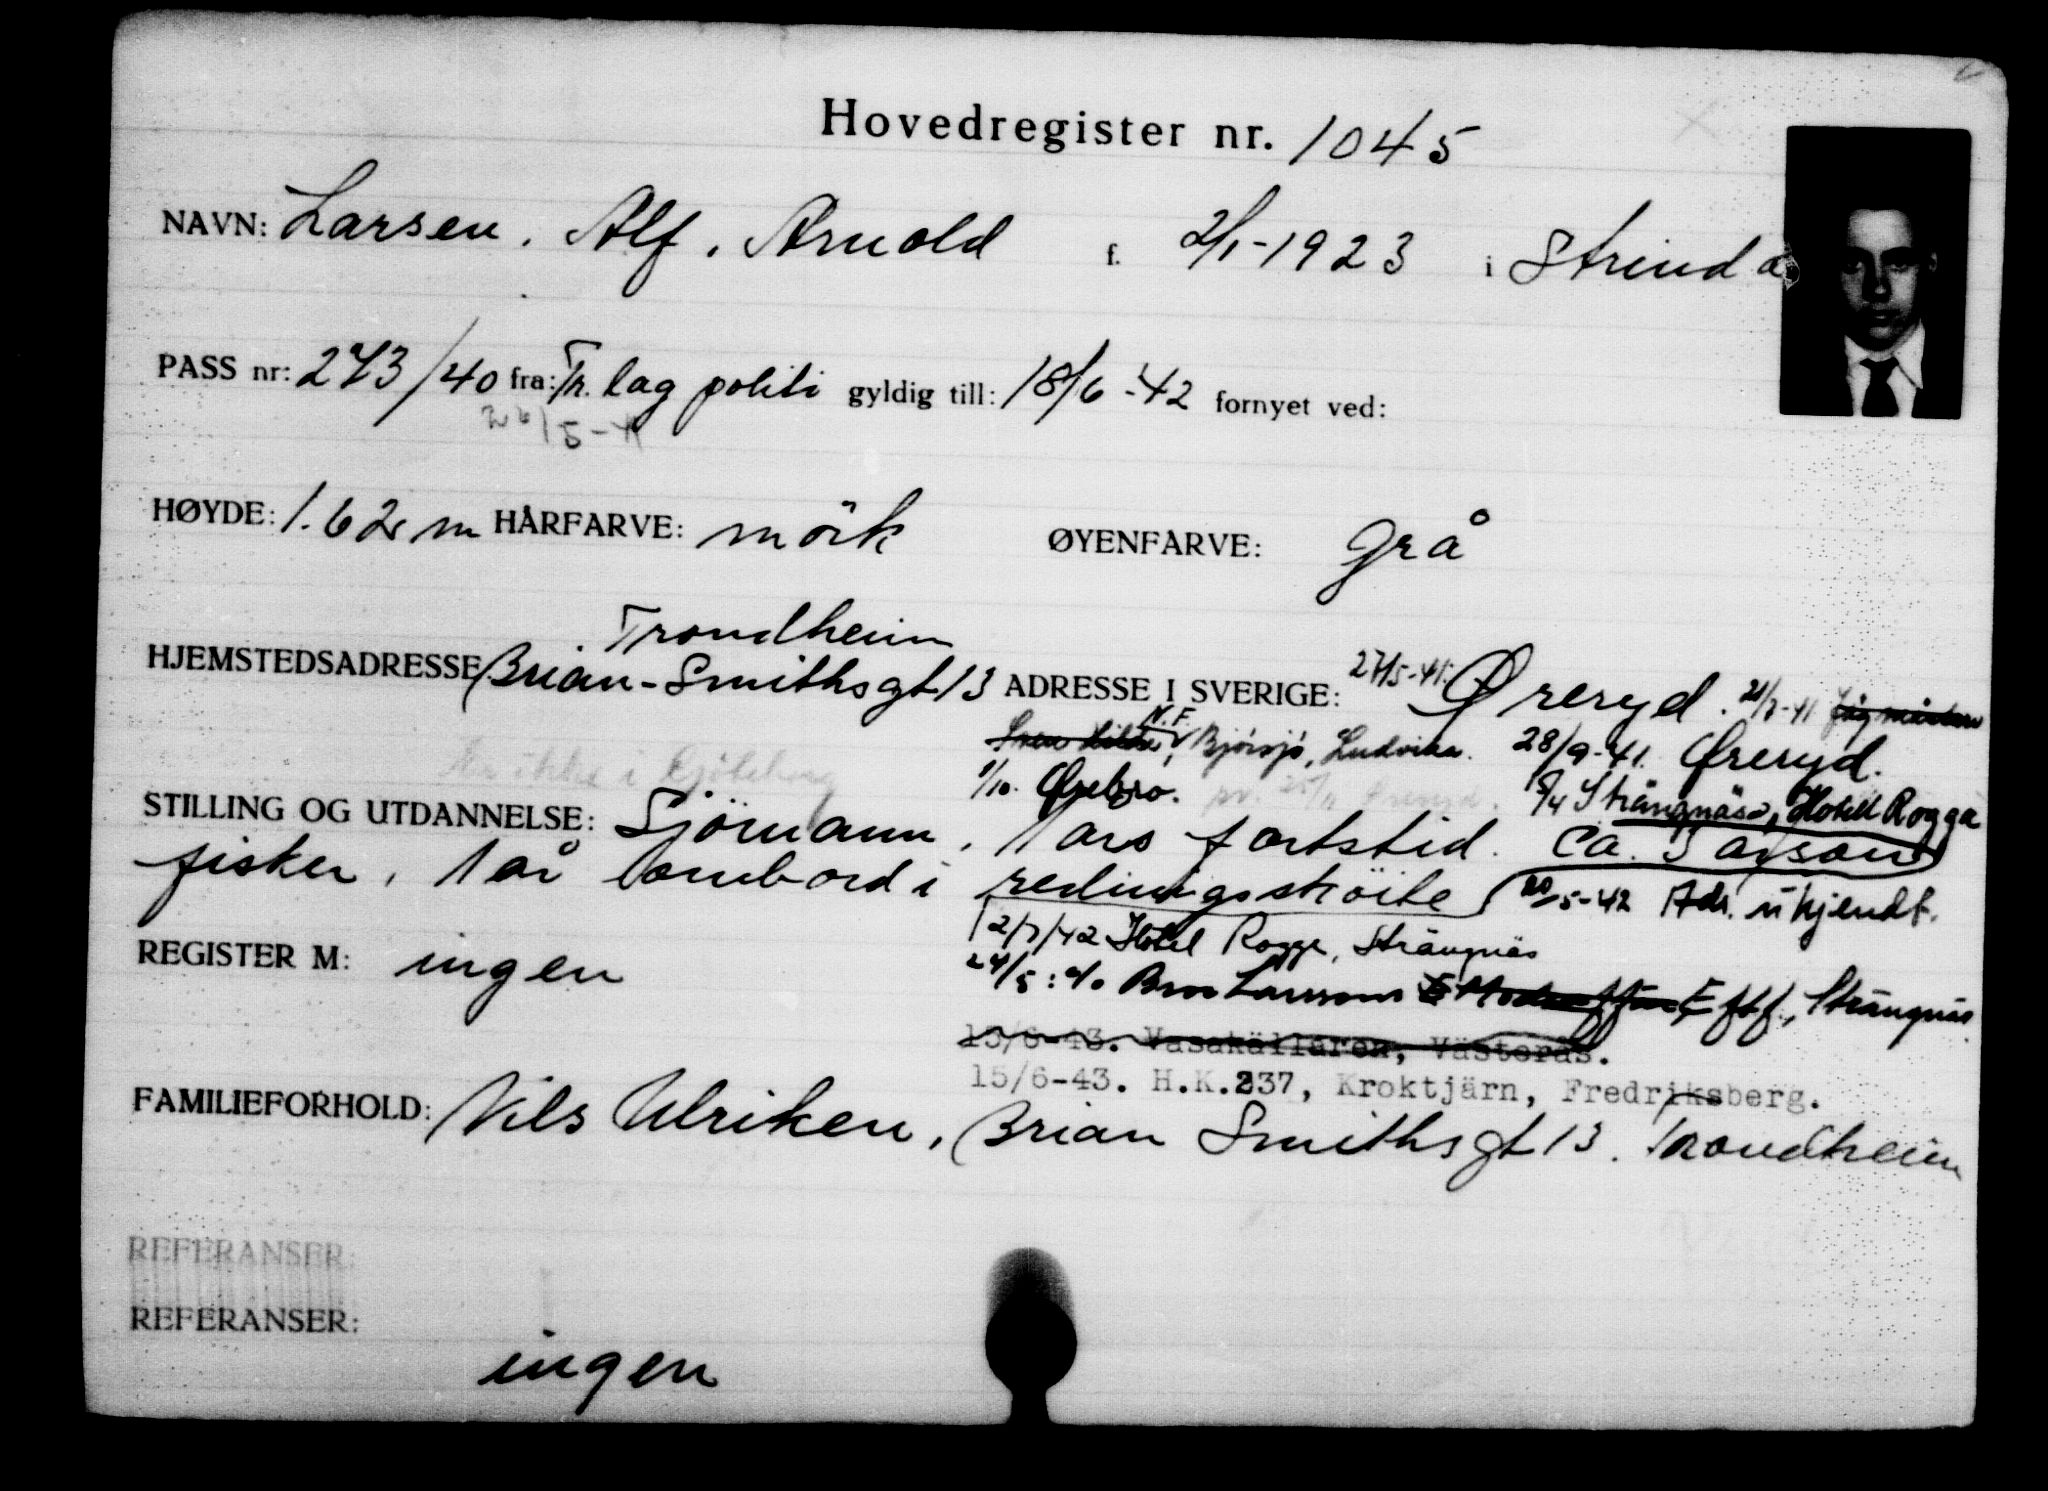 Hovedregister nr. 1045
NAVN: Larsen, Alf, Arnold f. 2/1-1923 i Strinda
PASS nr: 273/40 fra: Tr.lag politi gyldig till: 18/6-42 fornyet ved:
26/5-41
HØYDE: 1.62 m HÅRFARVE: mörk ØYENFARVE: grå
Trondheim
HJEMSTEDSADRESSE Brian-Smithsgt 13 ADRESSE I SVERIGE: 27/5-41: Øreryd.
N.F.
Bjørsjö, Ludvika. 28/9-41. Øreryd.
Er ikke i Gjöteborg
1/10. Ørebro. Øreryd. Strängnäs, Hotell Rogga
STILLING OG UTDANNELSE: Sjömann, 1 års fartstid. Ca. 3
fisker, 1 år ombord i redningsskröite 20/5-42 Adr. ukjendt.
12/7/42 Hotel Rogge, Strängnäs
REGISTER M: ingen
24/5: c/o Larssons Eftf., Strängnäs
15/6-43. Vasakälleren, Västerås.
15/6-43. H.K.237, Kroktjärn, Fredriksberg.
FAMILIEFORHOLD: Nils Ulriken, Brian Smithsgt 13. Trondheim
REFERANSER:
REFERANSER:
ingen